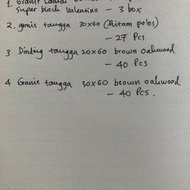 1. Granit Lantai
super black Valentino – 3 box
2. granis tangga 30x60 (hitam polos)
– 27 Pcs
3 Dinding tangga 20x60 brown oakwood
– 40 Pcs
4 Granis tangga 30x60 brown oakwood
– 40 Pcs.